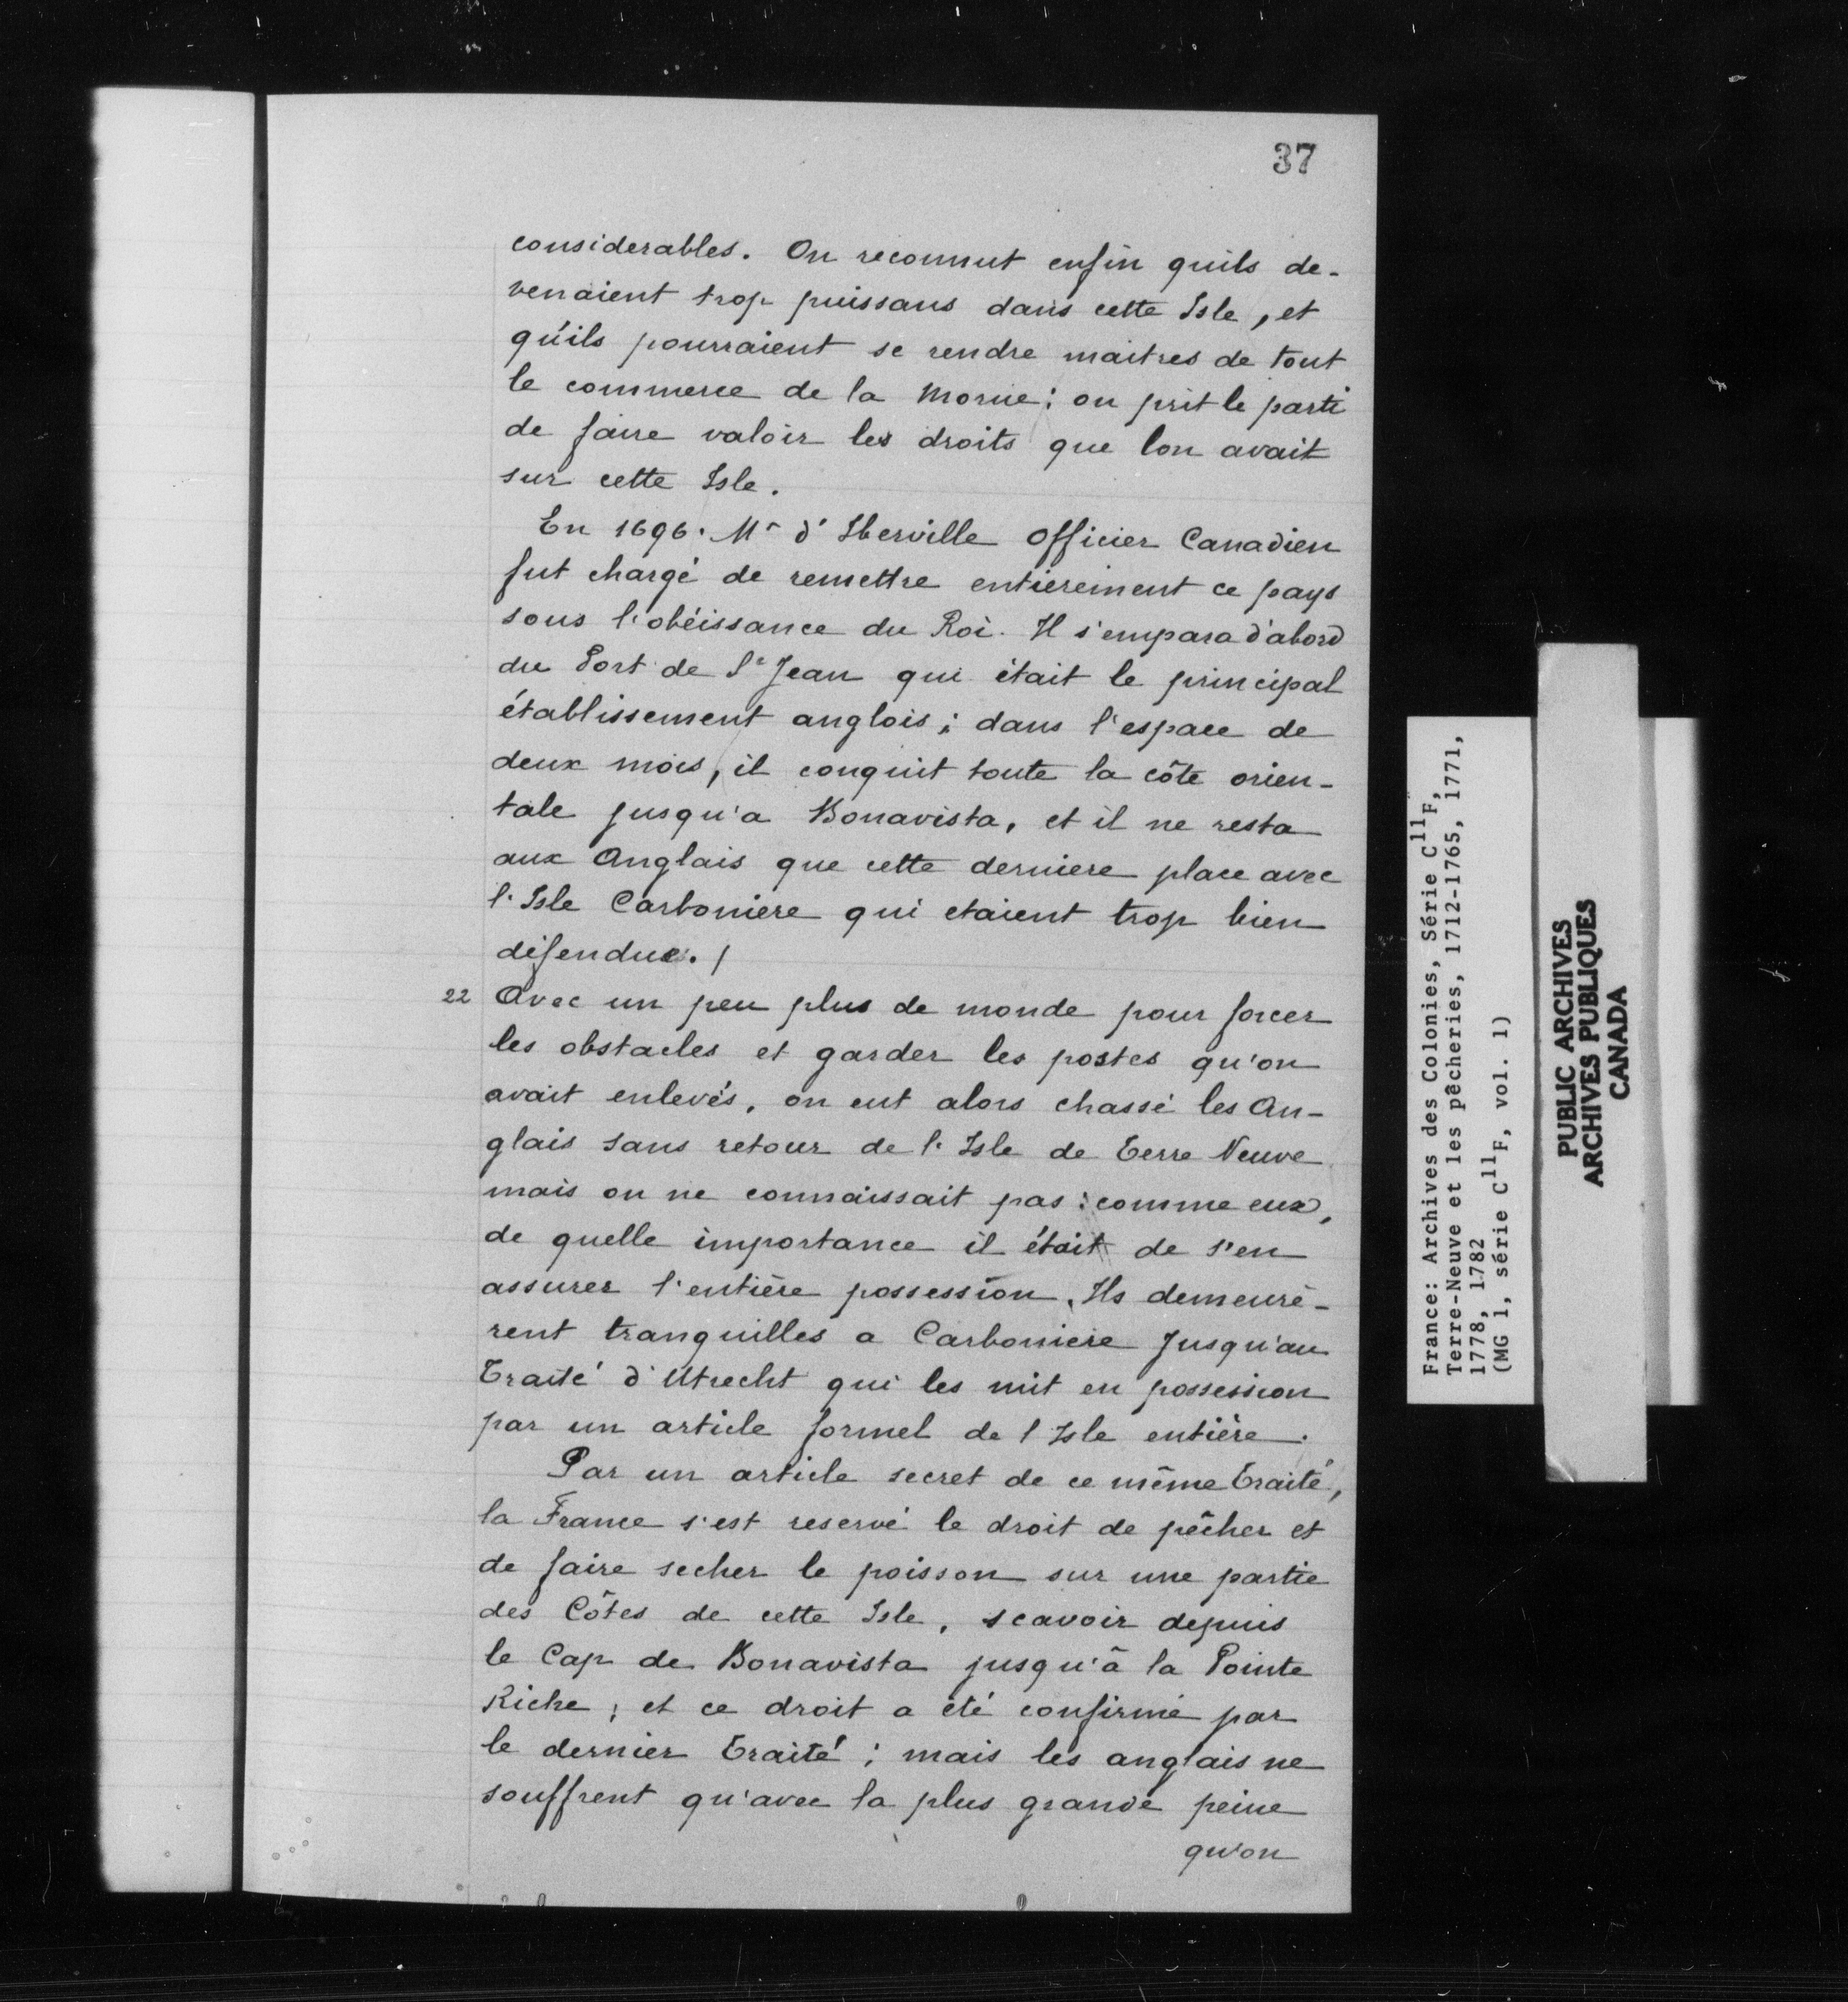 37
considerables. On reconnut enfin quils de-
venaient trop puissans dans cette Isle, et
qu'ils pourraient se rendre maitres de tout
le commerce de la Morue; on prit le parti
de faire valoir les droits que lon avait
sur cette Isle.
En 1696. Mr d'Iberville Officier Canadien
fut chargé de remettre entierement ce pays
sous l'obéissance du Roi. Il s'empara d'abord
du Port de St Jean qui était le principal
établissement anglois; dans l'espace de
deux mois, il conquit toute la côte orien-
tale jusqu'a Bonavista, et il ne resta
aux Anglais que cette derniere place avec
l'Isle Carboniere qui etaient trop bien
défendue. /
22 Avec un peu plus de monde pour forcer
les obstacles et garder les postes qu'on
avait enlevés, on eut alors chassé les An-
glais sans retour de l'Isle de Terre Neuve
mais on ne connaissait pas: comme eux,
de quelle importance il était de s'en
assurer l'entière possession. Ils demeurè-
rent tranquilles a Carboniere Jusqu'au
Traité d'Utrecht qui les mit en possession
par un article formel de l Isle entière.
Par un article secret de ce même Traité,
la France s'est reservé le droit de pêcher et
de faire secher le poisson sur une partie
des Côtes de cette Isle, scavoir depuis
le Cap de Bonavista jusqu'à la Pointe
Riche; et ce droit a été confirmé par
le dernier Traité; mais les anglais ne
souffrent qu'avec la plus grande peine
qu'on
France: Archives des Colonies, Série C11F,
Terre-Neuve et les pêcheries, 1712-1765, 1771,
1778, 1782
(MG 1, série C11F, vol. 1)
PUBLIC ARCHIVES
ARCHIVES PUBLIQUES
CANADA